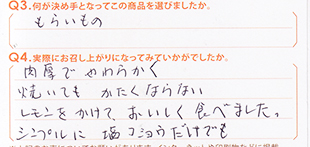 Q3.何が決め手となってこの商品を選びましたか。
もらいもの
Q4.実際にお召し上がりになってみていかがでしたか。
肉厚でやわらかく
焼いてもかたくならない
レモンをかけて、おいしく食べました。
シンプルに塩コショウだけでも